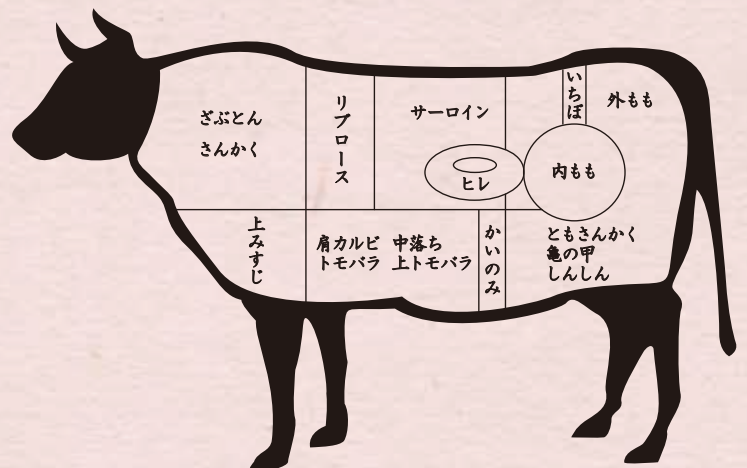 ざぶとん
さんかく
リブロース
サーロイン
いちぼ
外もも
ヒレ
内もも
上みすじ
肩カルビ
トモバラ
中落ち
上トモバラ
かいのみ
ともさんかく
亀の甲
しんしん